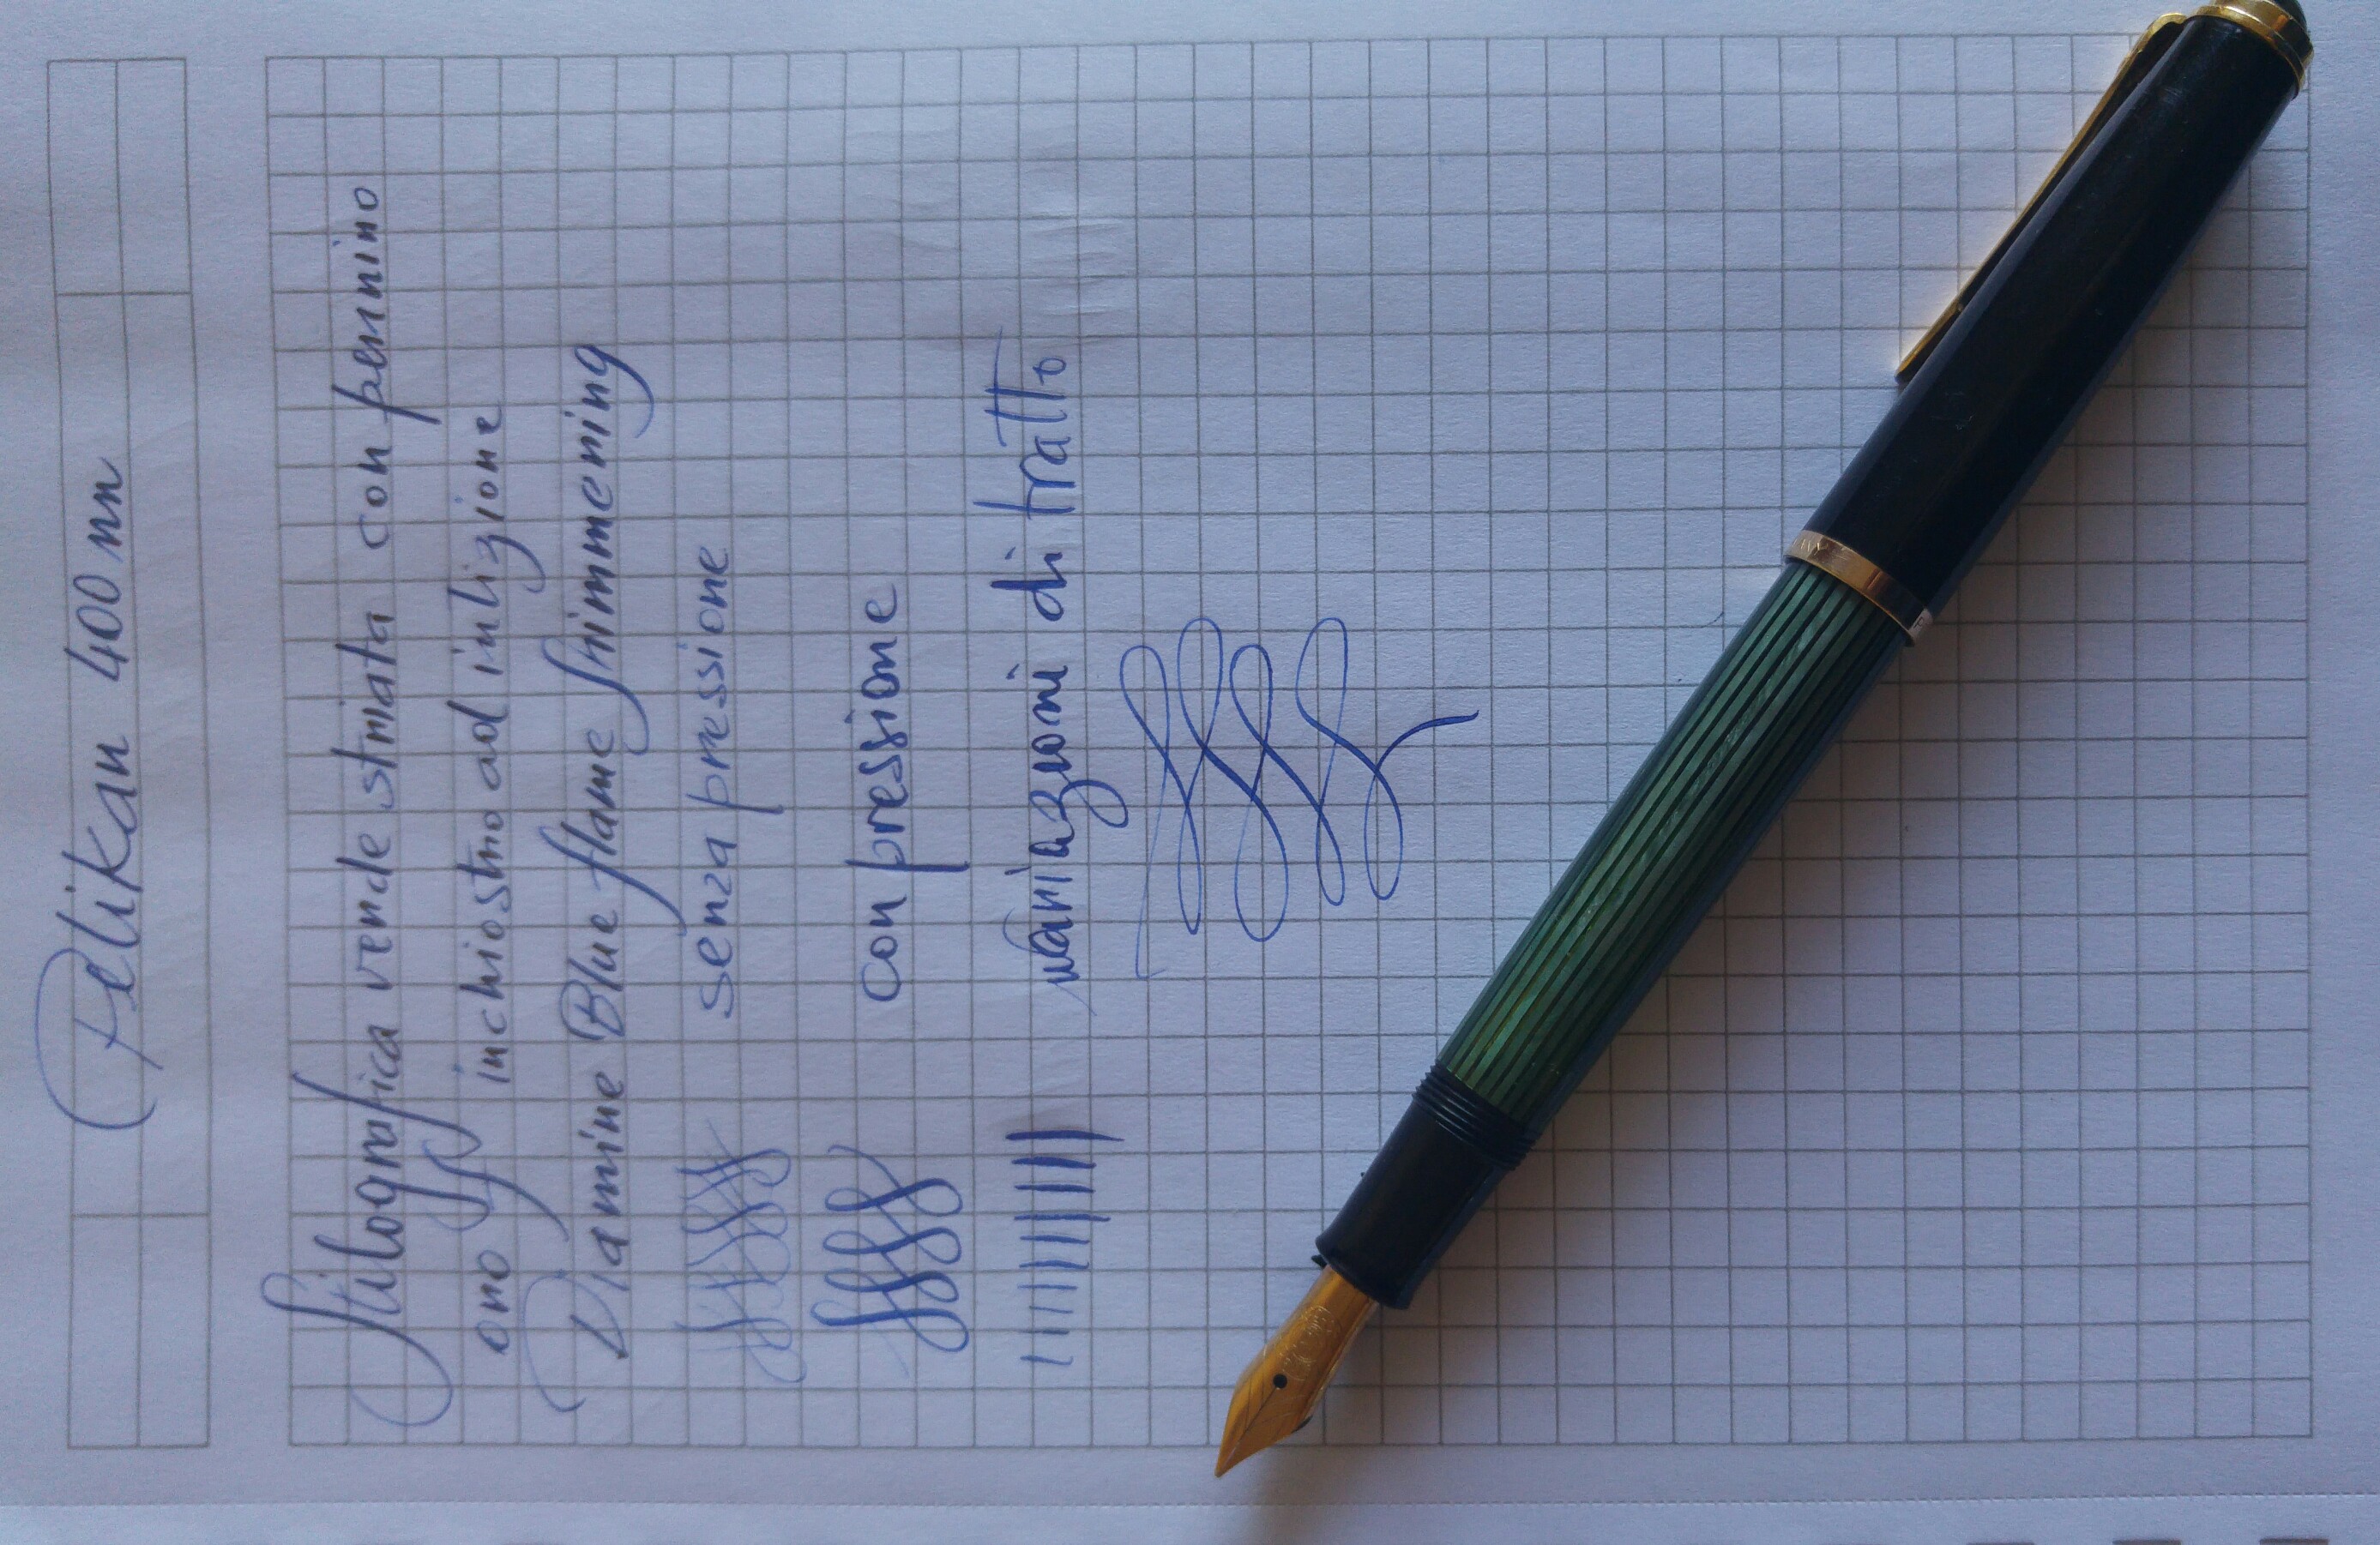 Pelikan 400 nn
Stilografica verde striata con pennino
oro ff inchiostro ad
Diamine Blue flame Shimmering
senza pressione
con pressione
variazioni di tratto